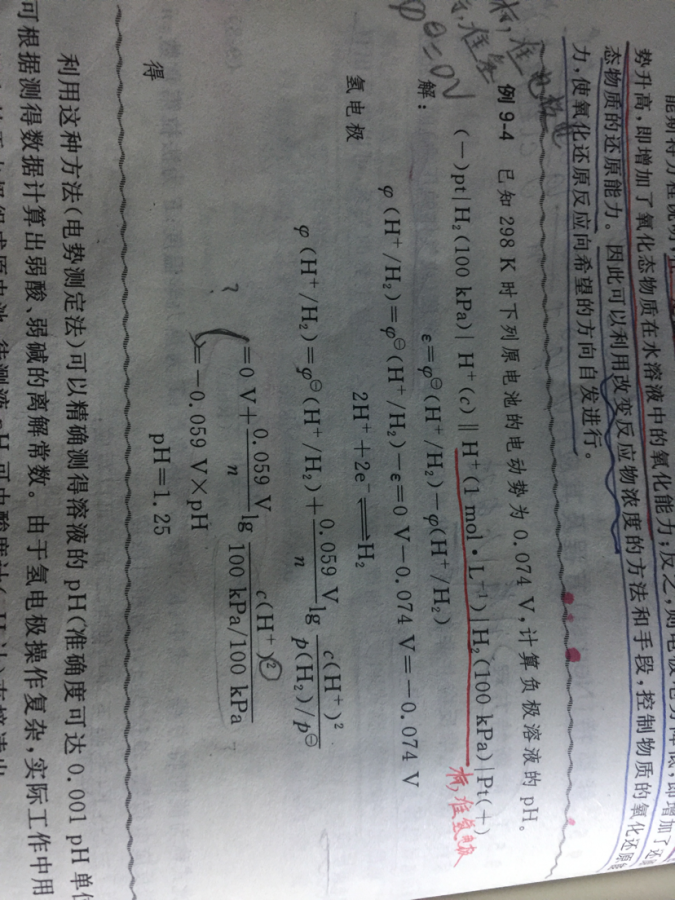 势升高,即增加了氧化态物质在水溶液中的氧化能力;反之,则电极电势降低,即增加了还原
态物质的还原能力。因此可以利用改变反应物浓度的方法和手段,控制物质的氧化还原能
力,使氧化还原反应向希望的方向自发进行。
标准氢
φ⊖=0V
例 9-4 已知 298 K 时下列原电池的电动势为 0.074 V,计算负极溶液的 pH。
(−)pt|H₂(100 kPa)|H⁺(c)‖H⁺(1 mol·L⁻¹)|H₂(100 kPa)|Pt(+)
标准氢电极
解:
ε=φ⊖(H⁺/H₂)−φ(H⁺/H₂)
φ(H⁺/H₂)=φ⊖(H⁺/H₂)−ε=0 V−0.074 V=−0.074 V
氢电极 2H⁺+2e⁻⇌H₂
φ(H⁺/H₂)=φ⊖(H⁺/H₂)+0.059 V/n lg c(H⁺)²/p(H₂)/p⊖
=0 V+0.059 V/n lg c(H⁺)²/100 kPa/100 kPa
?
=−0.059 V×pH
得 pH=1.25
利用这种方法(电势测定法)可以精确测得溶液的 pH(准确度可达 0.001 pH 单位
可根据测得数据计算出弱酸、弱碱的离解常数。由于氢电极操作复杂,实际工作中用